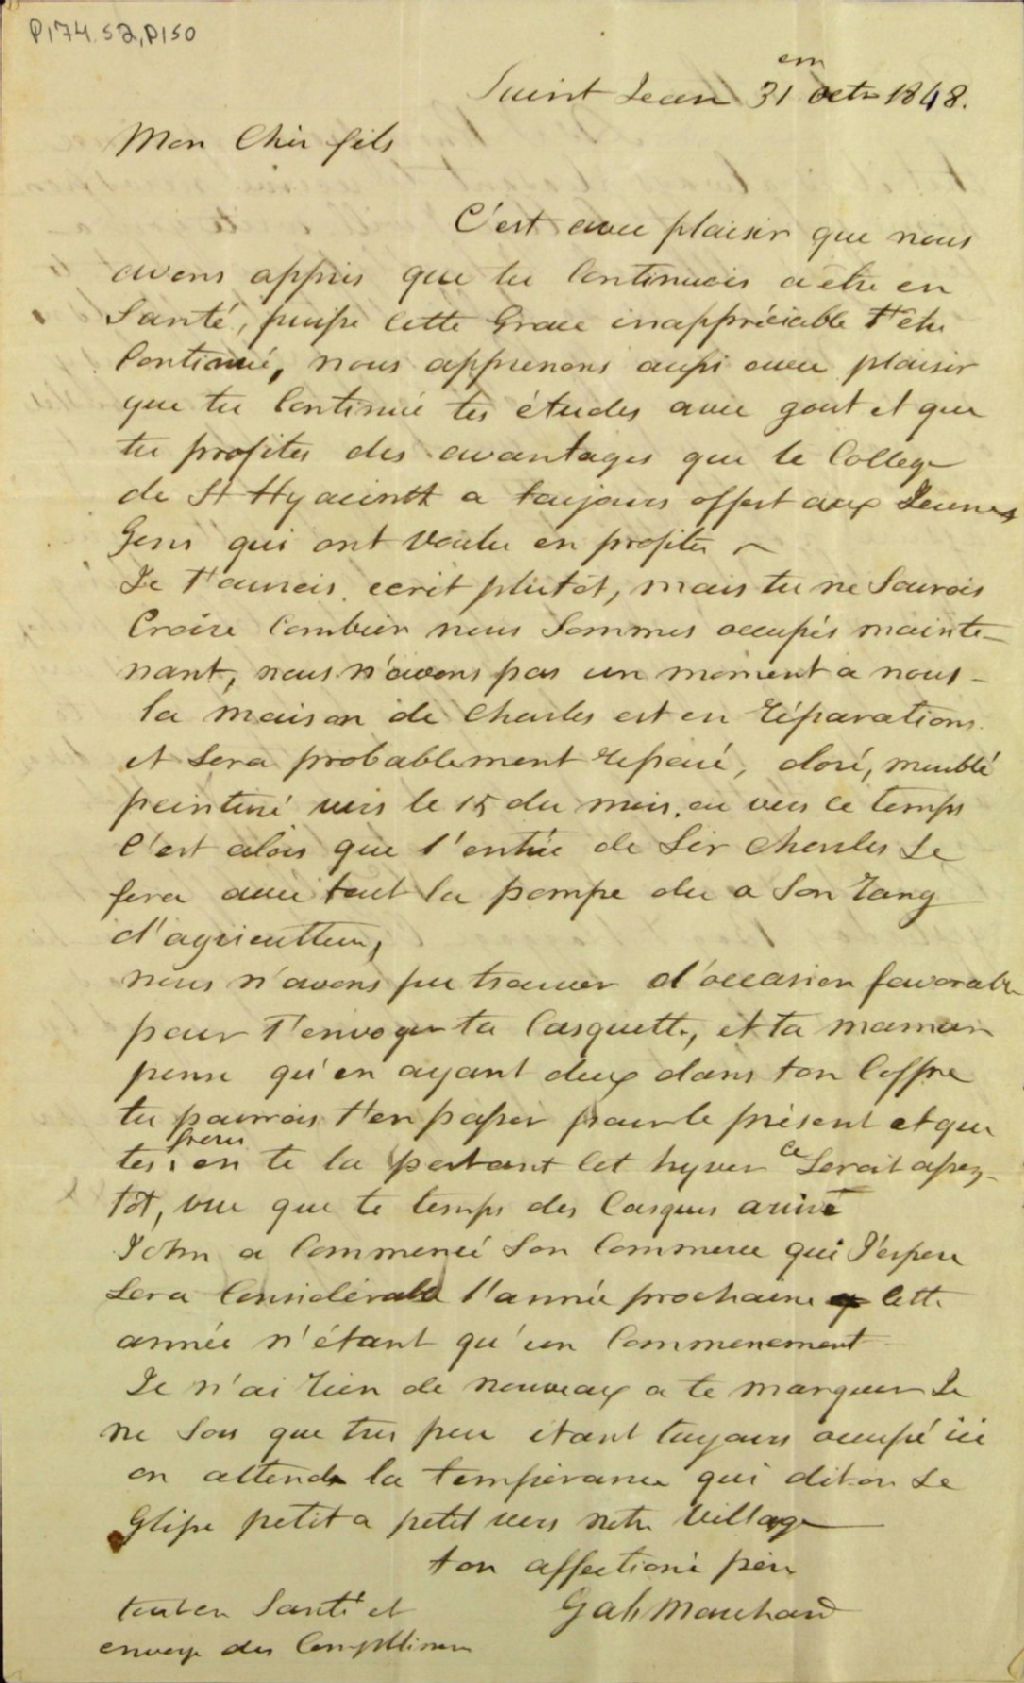 P174.S2,P150
Saint Jean 31 em Octr 1848.
Mon Cher fils
C'est avec plaisir que nous
avons appris que tu Continuais a etre en
Santé, puisse cette Grace inappréciable t'etre
Continué, nous apprenons aussi avec plaisir
que tu Continue tes études avec gout et que
tu profites des avantages que le College
de St Hyacinth a toujours offert aux Jeunes
Gens qui ont voulu en profiter
Je t'aurais ecrit plutôt, mais tu ne Saurois
Croire Combien nous Sommes occupés mainte-
nant, nous n'avons pas un moment a nous-
la maison de Charles est en réparations.
et Sera probablement reparé, doré, meublé
peinturé vers le 15 du mois, ou vers ce temps
C'est alors que l'entrée de Sir Charles Se
fera avec tout la pompe du a Son rang
d'agriculteur,
nous n'avons pu trouver d'occasion favorable
pour t'envoyer ta Casquette, et ta maman
pense qu'en ayant deux dans ton Coffre
tu pourrois t'en passer pour le présent et que
tes freres en te la portant cet hyver ce Seroit assez
tôt, vue que le temps des Casques arrive
John a Commencé Son Commerce qui J'espere
Sera Considérable l'année prochaine cette
année n'étant qu'un Commencement
Je n'ai rien de nouveaux a te marquer Je
ne Sors que tres peu étant toujours occupé ici
on attends la tempérance qui dit-on Se
Glisse petit a petit vers notre Village
ton affectioné père
Gab Marchand
tout en Santé et
envoye des Complimens